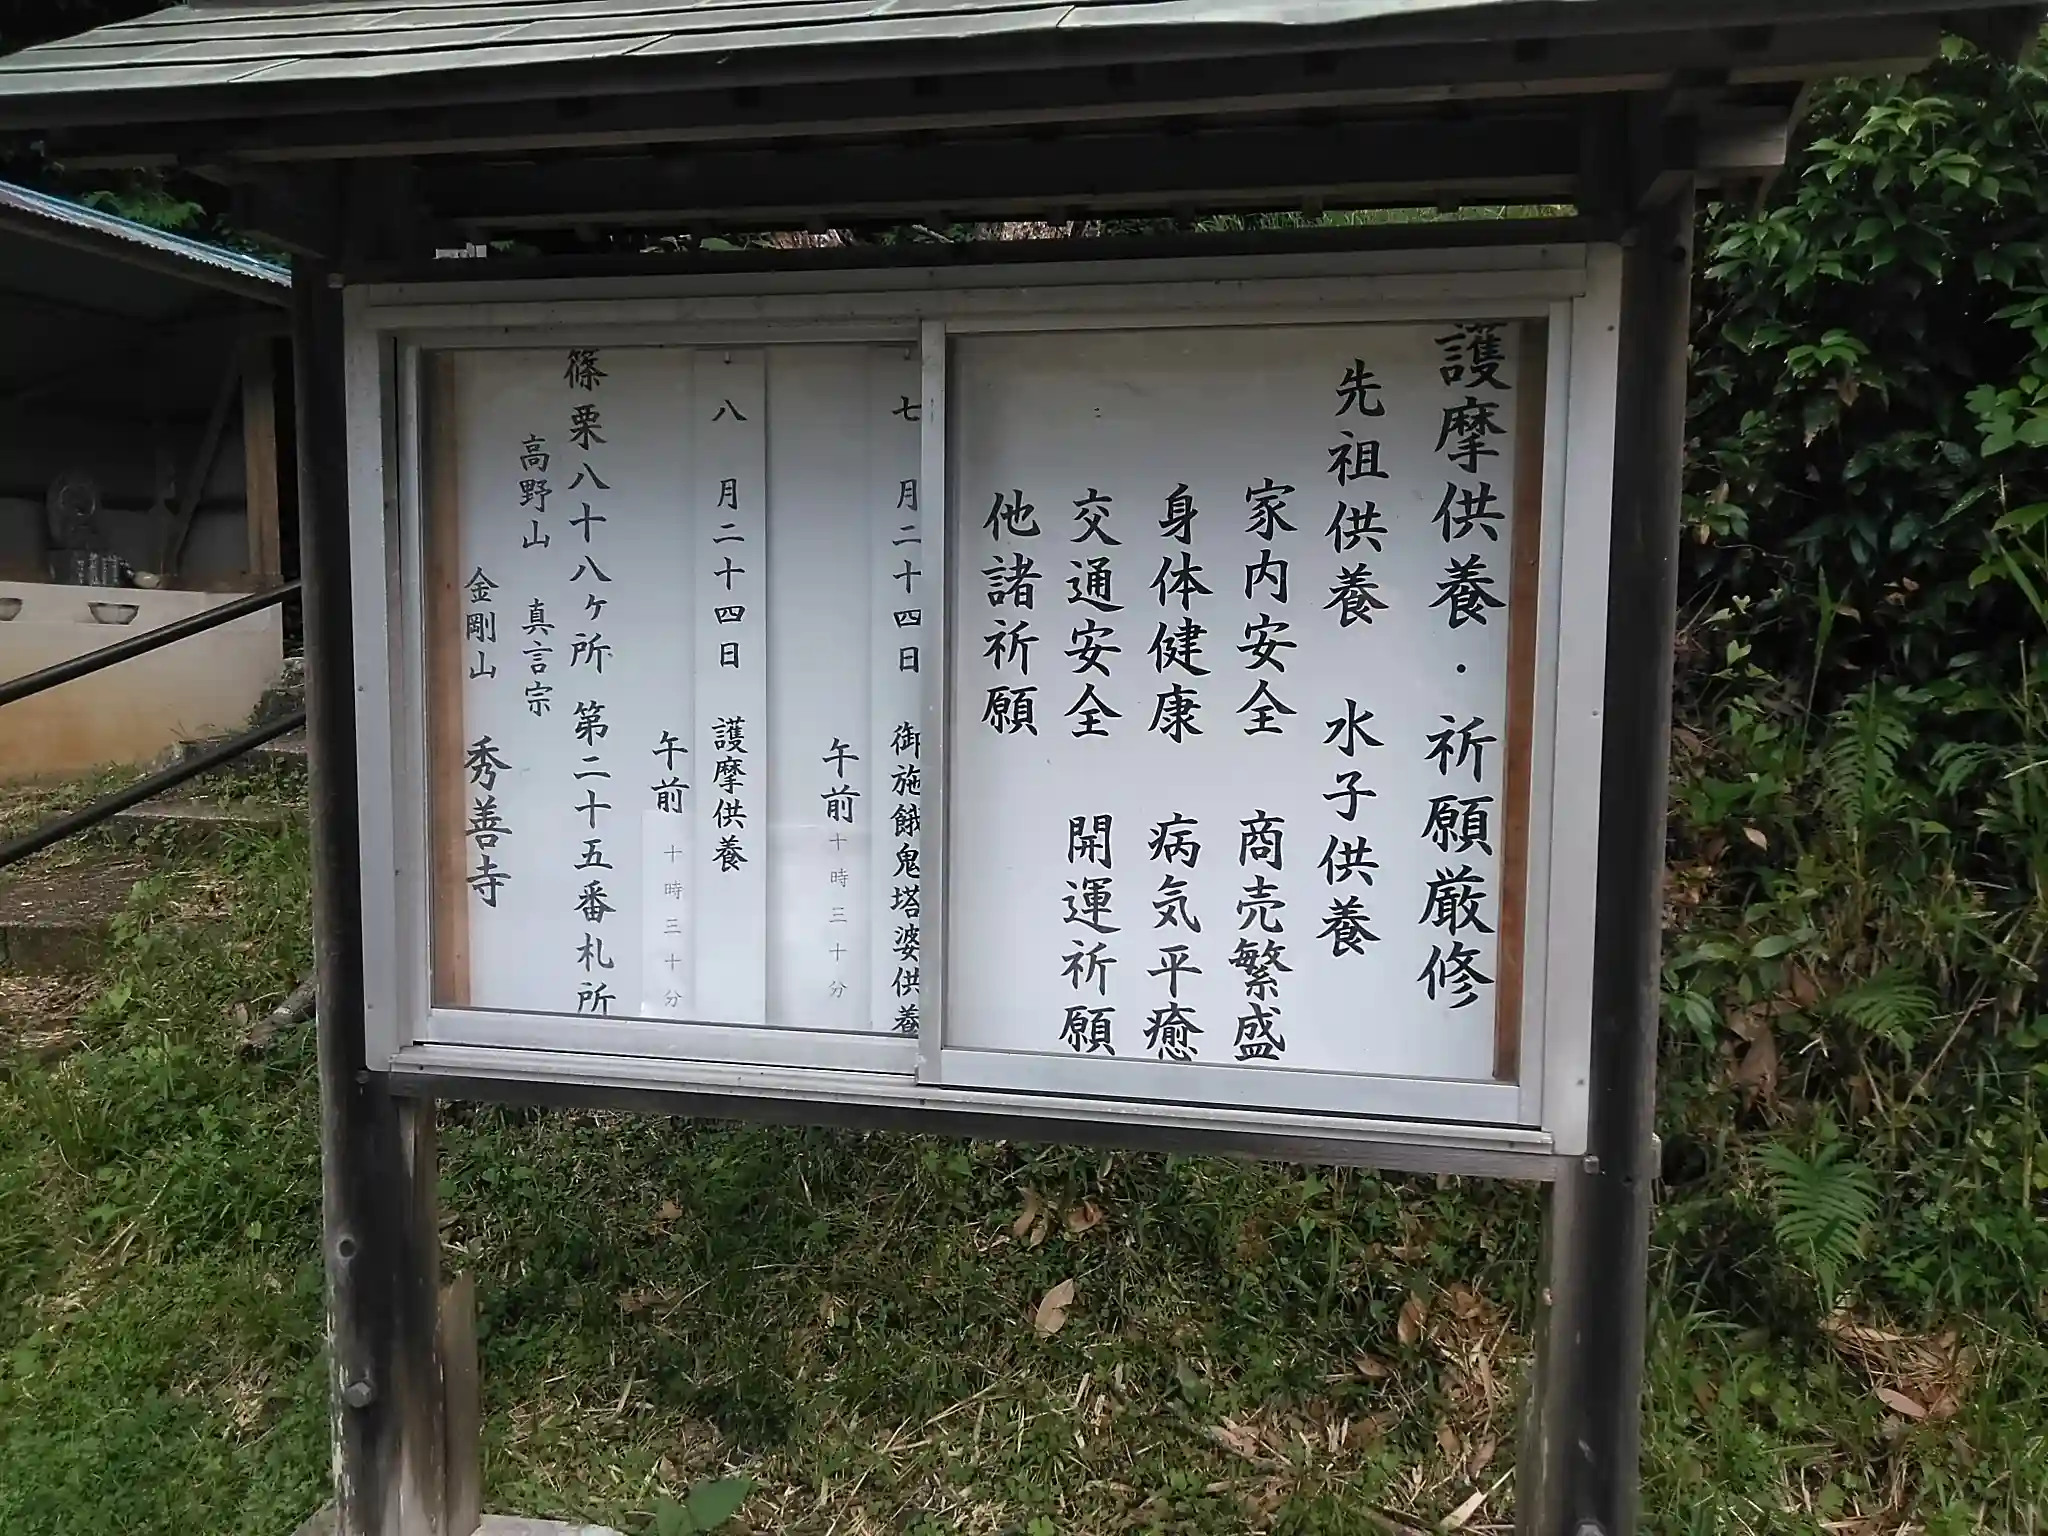 護摩供養・祈願厳修
先祖供養　水子供養
家内安全　商売繁盛
身体健康　病気平癒
交通安全　開運祈願
他諸祈願
七月二十四日　御施餓鬼塔婆供養
午前十時三十分
八月二十四日　護摩供養
午前十時三十分
篠栗八十八ヶ所　第二十五番札所
高野山　真言宗
金剛山　秀善寺